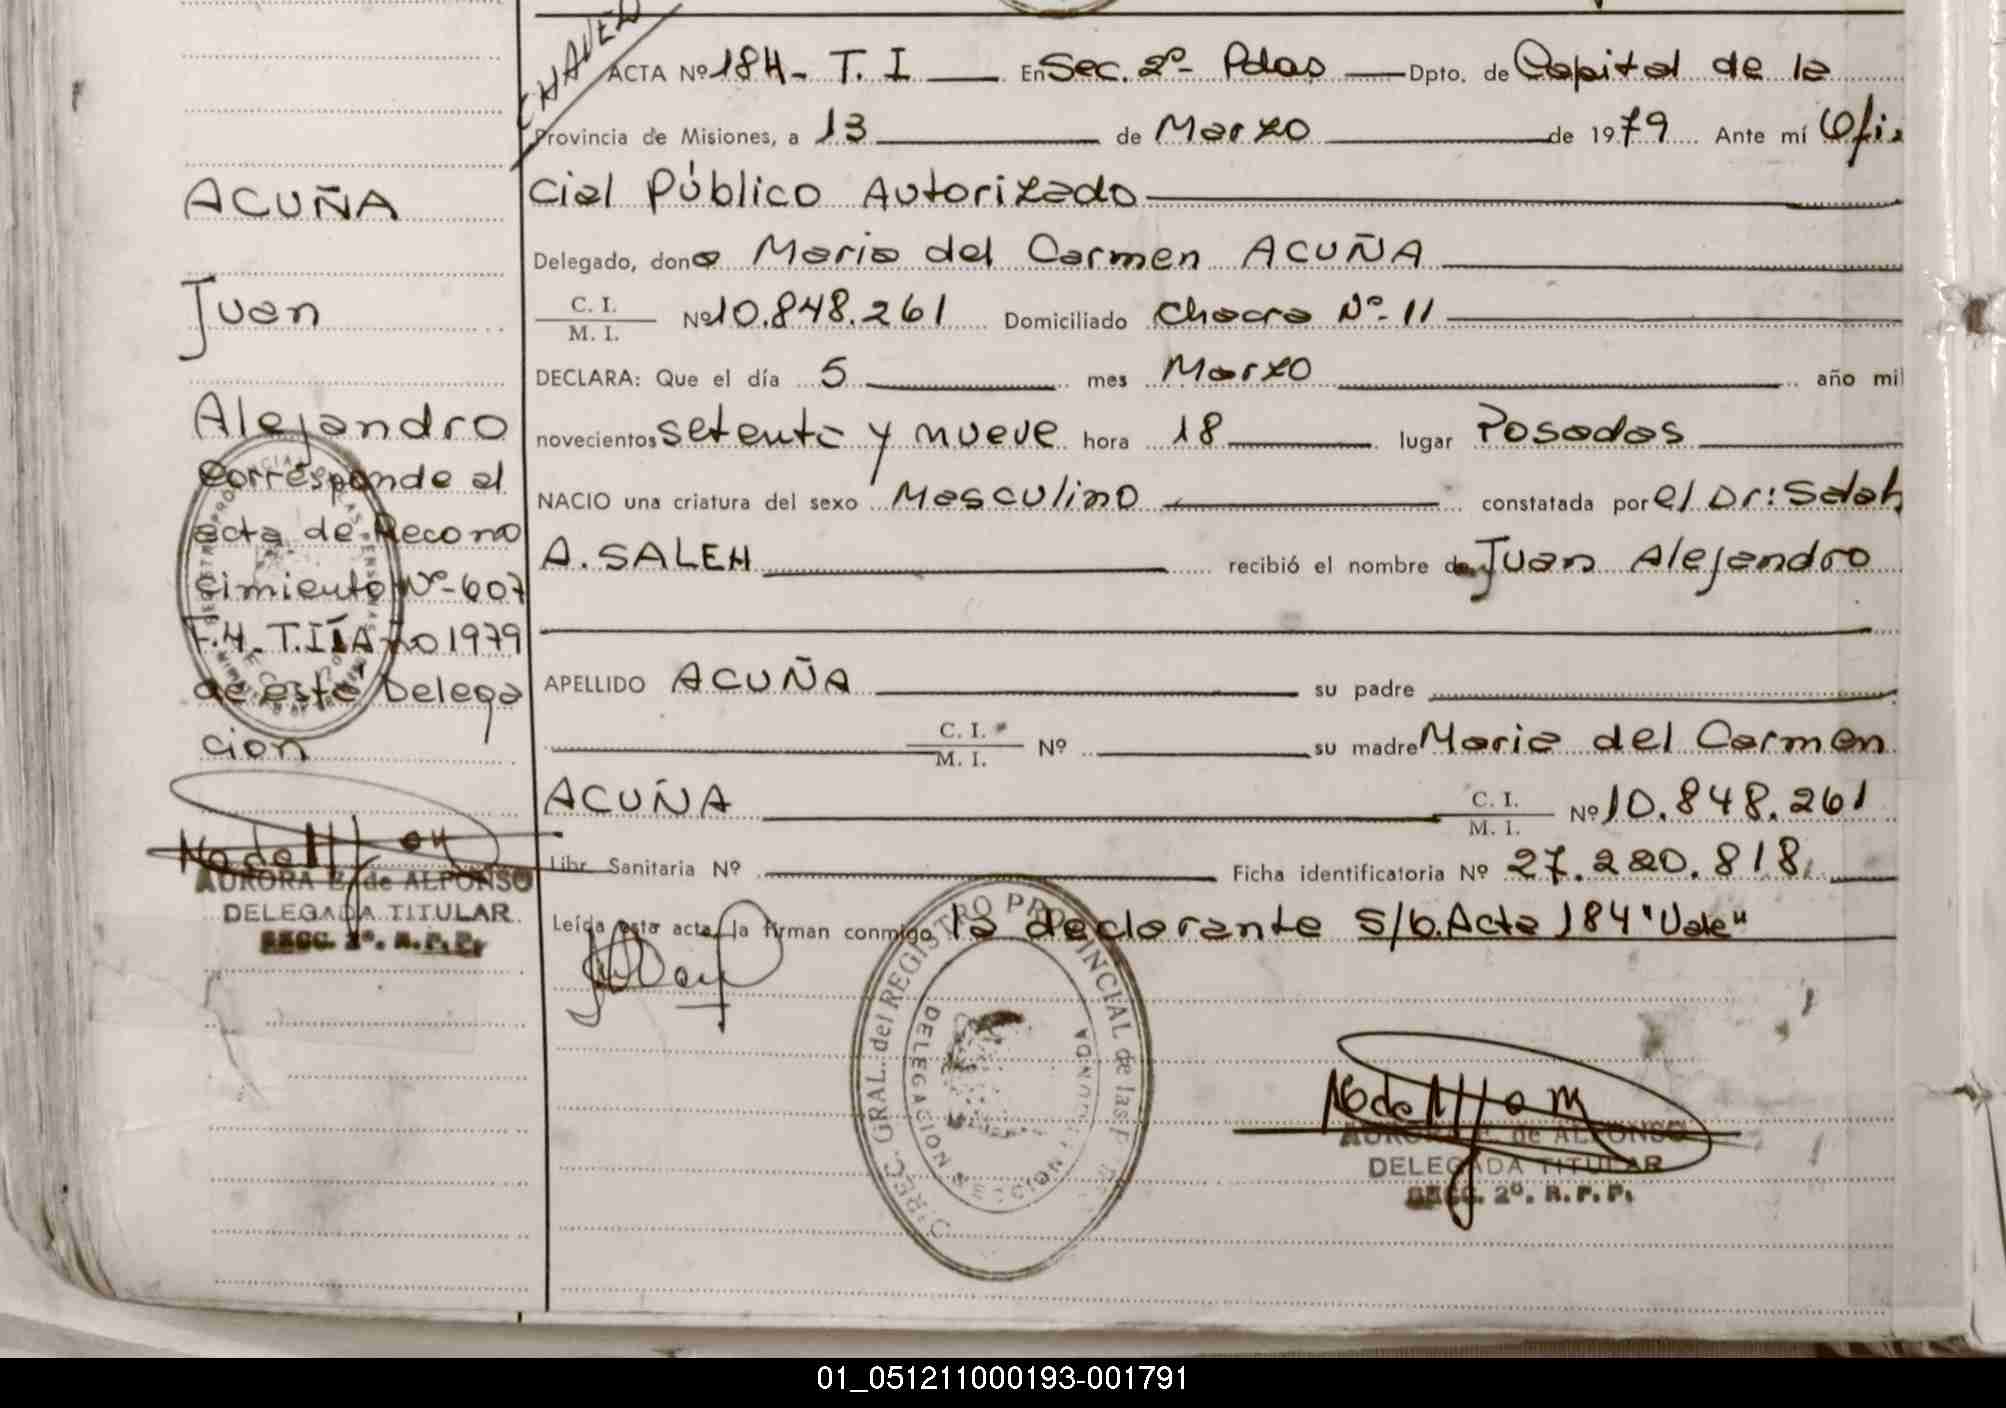 CHAVEZ
ACTA Nº 184 - T. I En Sec. 2º- Pdas Dpto. de Capital de la
Provincia de Misiones, a 13 de Marzo de 1979 Ante mí Ofi-
cial Público Autorizado
Delegado, dona Maria del Carmen ACUÑA
C. I.
M. I. Nº 10.848.261 Domiciliado Chacra Nº- 11
DECLARA: Que el día 5 mes Marzo año mil
novecientos setenta y nueve hora 18 lugar Posadas
NACIO una criatura del sexo Masculino constatada por el Dr: Salah
A. SALEH recibió el nombre de Juan Alejandro
APELLIDO ACUÑA su padre
C. I.
M. I. Nº su madre Maria del Carmen
ACUÑA C. I.
M. I. Nº 10.848.261
Libr. Sanitaria Nº Ficha identificatoria Nº 27.220.818
Leída esta acta, la firman conmigo la declarante s/b. Acta 184 "Vale"
ACUÑA
Juan
Alejandro
Corresponde al
acta de Recono
cimiento Nº-607
F.4. T.II Año 1979
de esta Delega
cion
AURORA E. de ALFONSO
DELEGADA TITULAR
SECC. 2º. R. P. P.
DIREC. GRAL. del REGISTRO PROVINCIAL de las
DELEGACION SECCION SEGUNDA
AURORA E. de ALFONSO
DELEGADA TITULAR
SECC. 2º. R. P. P.
01_051211000193-001791